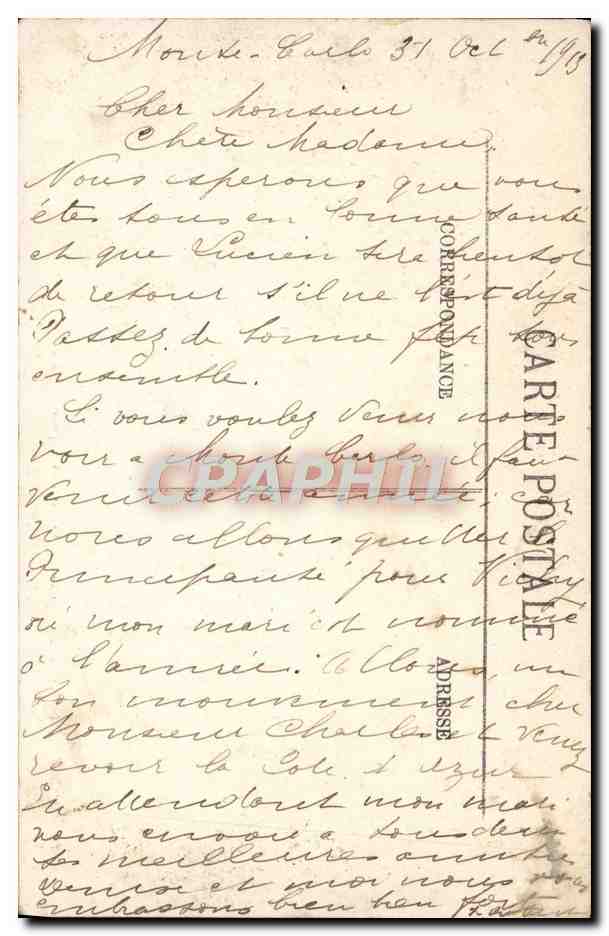 Monte-Carlo 31 Oct 1913
Cher Monsieur
Chère Madame
Nous esperons que vous
êtes tous en bonne santé
et que Lucien sera bientot
de retour s'il ne l'est déjà
Passez de bonne fête tous
ensemble.
Si vous voulez venir nous
voir a Monte Carlo, il faut
venir cette année, car
nous allons quitter la
Principauté pour Vichy
où mon mari est nommé
à l'année. Allons, un
bon mouvement cher
Monsieur Charles et venez
revoir la Cote d'Azur
En attendant mon mari
vous envoie a tous deux
ses meilleures amitiés
et moi nous vous
embrassons bien bien fort
CORRESPONDANCE
ADRESSE
CARTE POSTALE
CPAPHIL